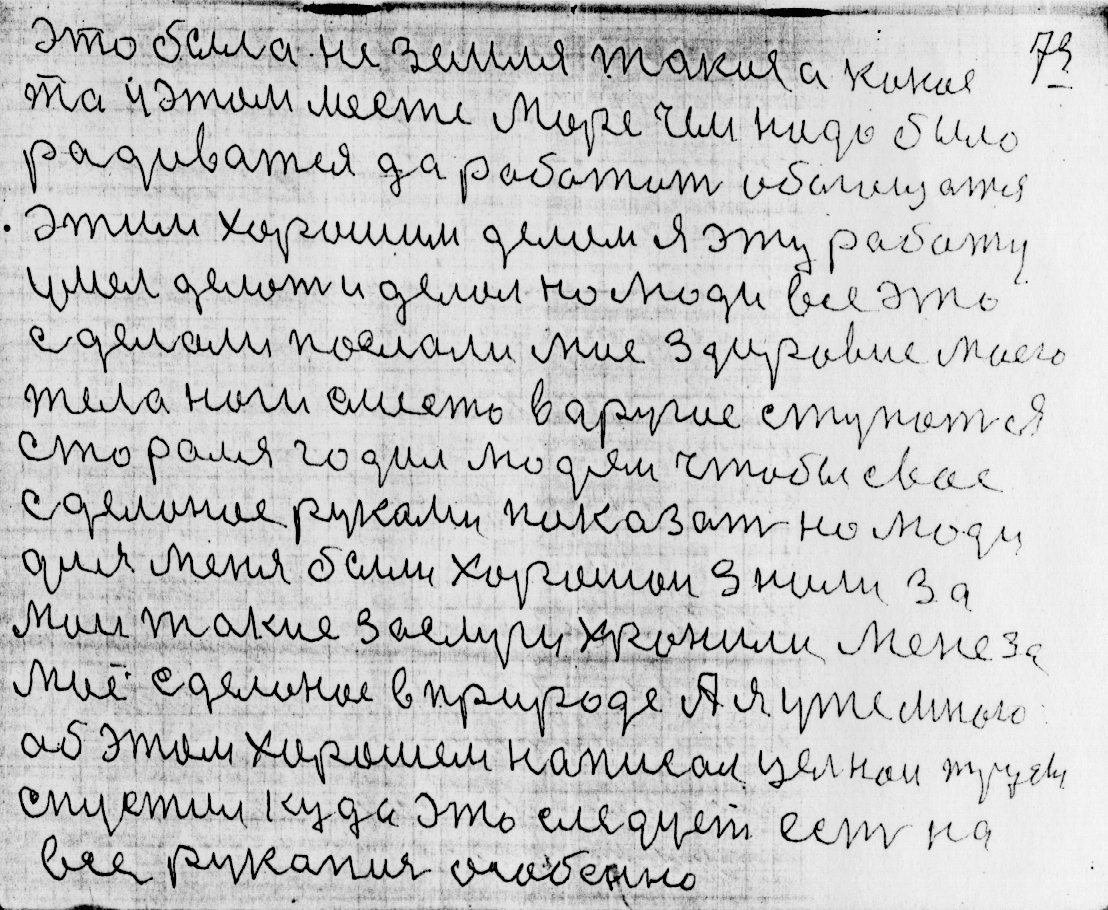 это была не земля такия а какое 73
та и этом месте море чем надо было
радиватся да работат обагощатя
этим хорошим делом я эту работу
умел делат и делал но люди все это
сделали послали мое здировие моего
тела ноги сместо вдругие ступатся
сторамя годил людям чтобы свое
сделоное руками показат но люди
для меня были хорошои знали за
мои такие заслуги хронили мене за
моё сделоное в природе А я уже много
об этом хорошем написал целнои
спустил куда это следует ест на
все рукапия особенно